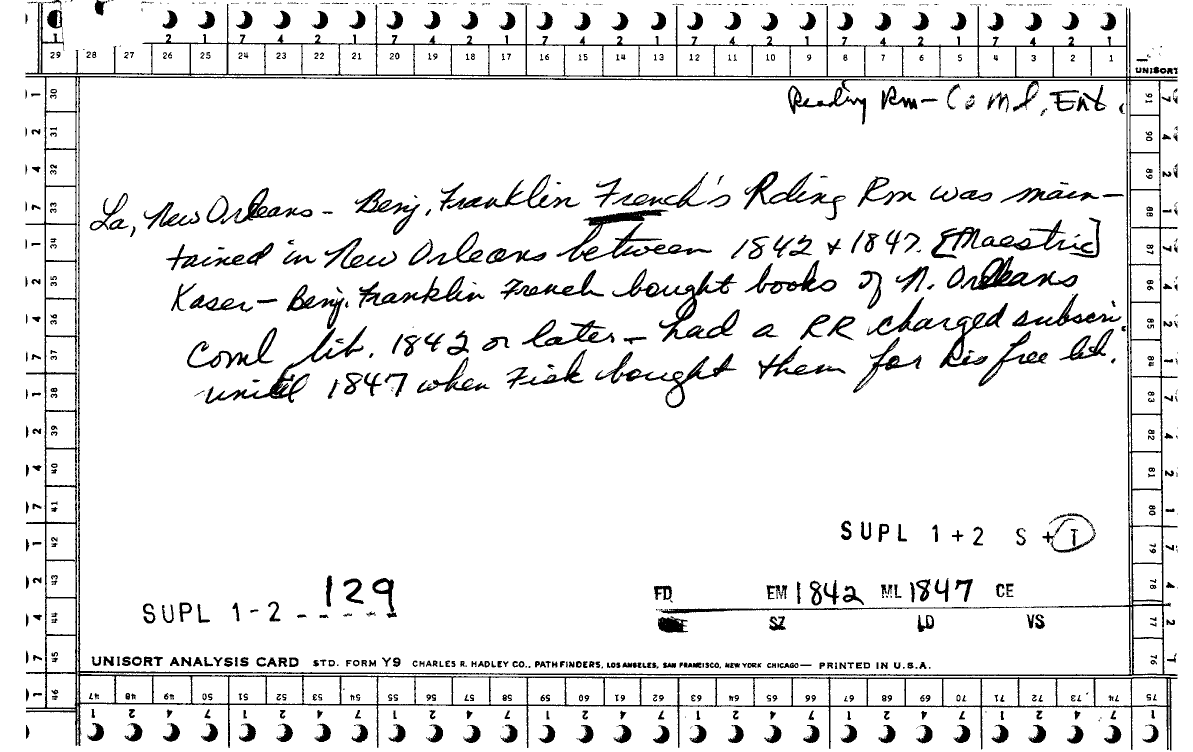 1 2 1 7 4 2 1 7 4 2 1 7 4 2 1 7 4 2 1 7 4 2 1 7 4 2 1
29 28 27 26 25 24 23 22 21 20 19 18 17 16 15 14 13 12 11 10 9 8 7 6 5 4 3 2 1
UNISORT
Reading Rm - Coml, Ent.
La, New Orleans - Benj. Franklin French's Rding Rm was main-
tained in New Orleans between 1842 + 1847. [Maestric]
Kaser - Benj. Franklin French bought books of N. Orleans
Coml lib. 1842 or later - had a RR charged subscri.
until 1847 when Fisk bought them for his free lib.
SUPL 1+2 S + T
SUPL 1-2 129
FD EM 1842 ML 1847 CE
SZ LD VS
UNISORT ANALYSIS CARD STD. FORM Y9 CHARLES R. HADLEY CO., PATHFINDERS, LOS ANGELES, SAN FRANCISCO, NEW YORK CHICAGO — PRINTED IN U.S.A.
30 31 32 33 34 35 36 37 38 39 40 41 42 43 44 45 46
91 90 89 88 87 86 85 84 83 82 81 80 79 78 77 76
47 48 49 50 51 52 53 54 55 56 57 58 59 60 61 62 63 64 65 66 67 68 69 70 71 72 73 74 75
1 2 4 7 1 2 4 7 1 2 4 7 1 2 4 7 1 2 4 7 1 2 4 7 1 2 4 7 1